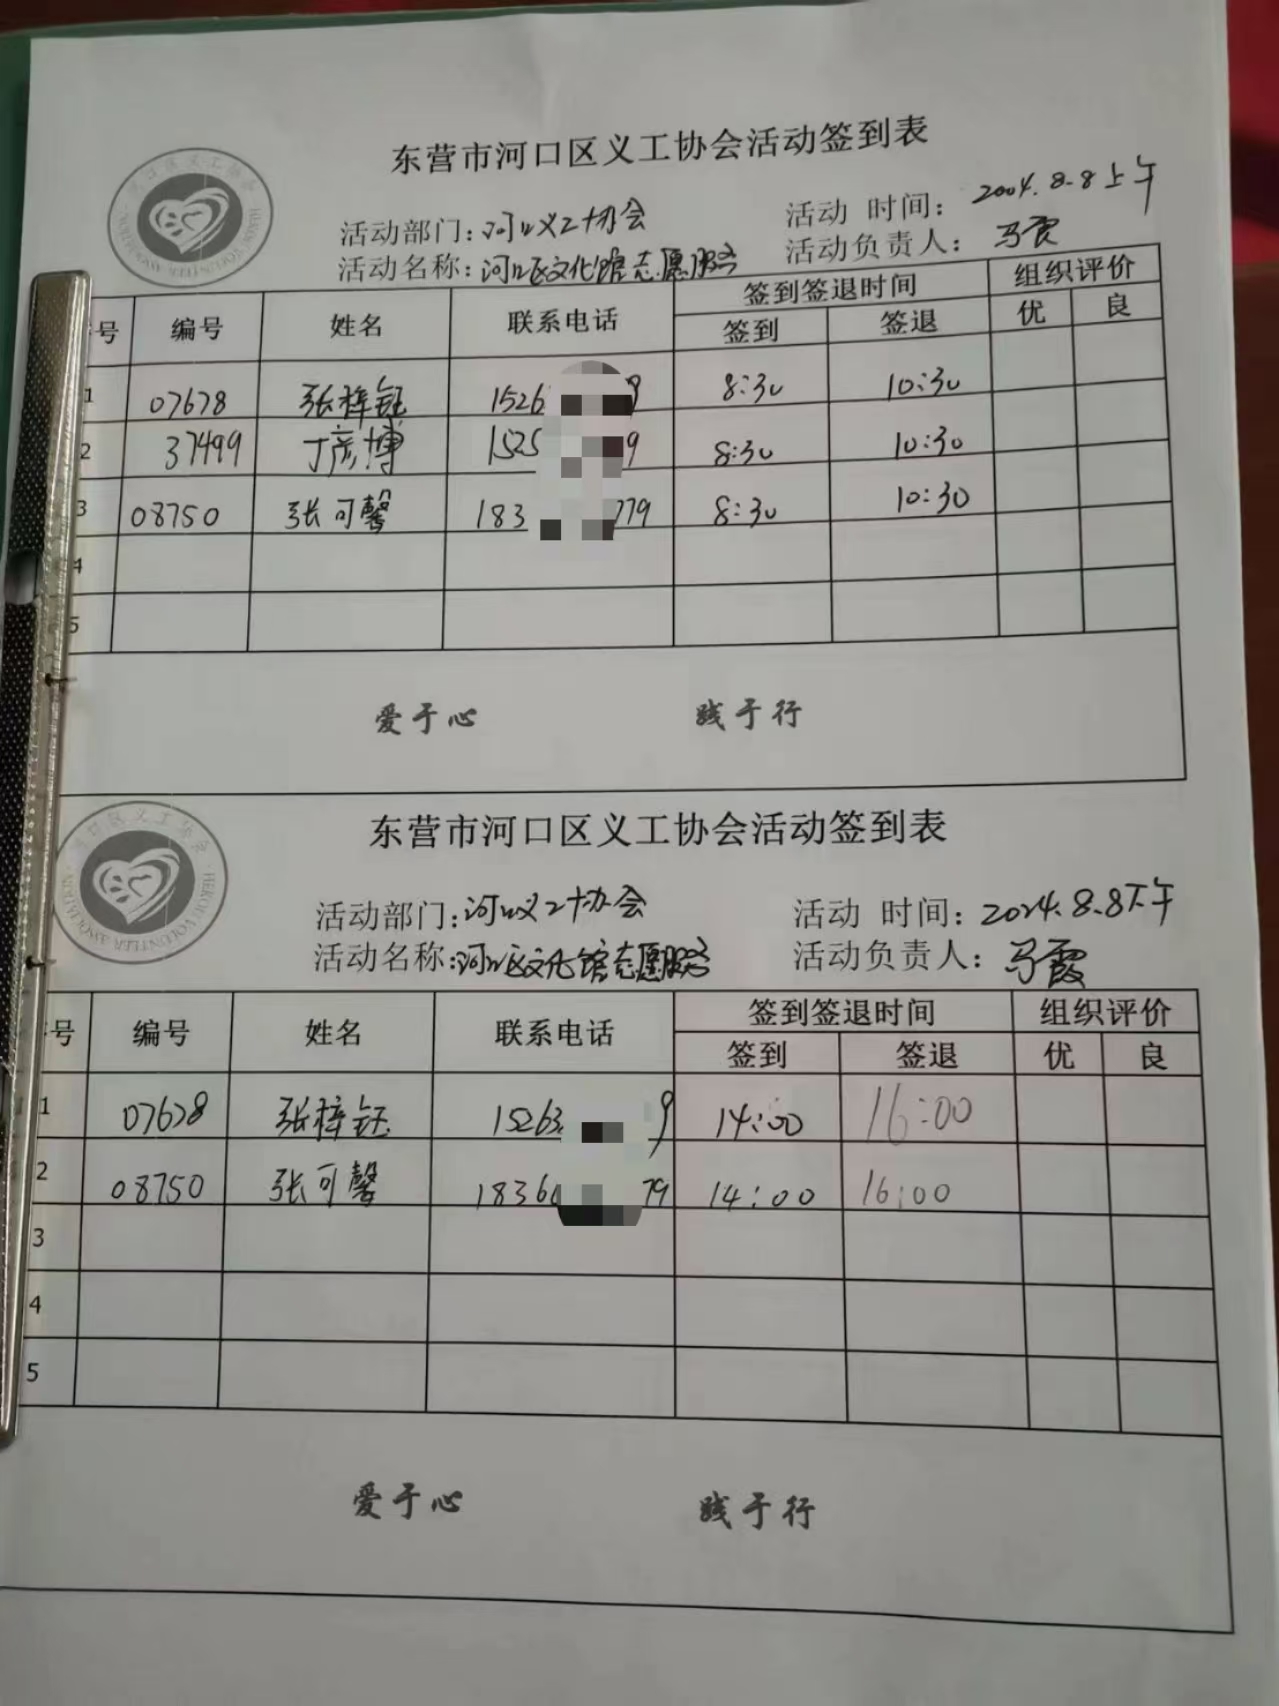 东营市河口区义工协会活动签到表
活动部门：河口义工协会 活动 时间：2004.8.8上午
活动名称：河口区文化馆志愿服务 活动负责人：马霞
号 编号 姓名 联系电话 签到签退时间 组织评价
签到 签退 优 良
1 07678 张梓钰 1526 9 8:30 10:30
2 37499 丁彦博 1525 9 8:30 10:30
3 08750 张可馨 183 779 8:30 10:30
4
5
爱于心 践于行
东营市河口区义工协会活动签到表
HEKOU VOLUNTEER ASSOCIATION
活动部门：河口义工协会 活动 时间：2024.8.8下午
活动名称：河口区文化馆志愿服务 活动负责人：马霞
号 编号 姓名 联系电话 签到签退时间 组织评价
签到 签退 优 良
1 07678 张梓钰 15263 9 14:00 16:00
2 08750 张可馨 1836 79 14:00 16:00
3
4
5
爱于心 践于行